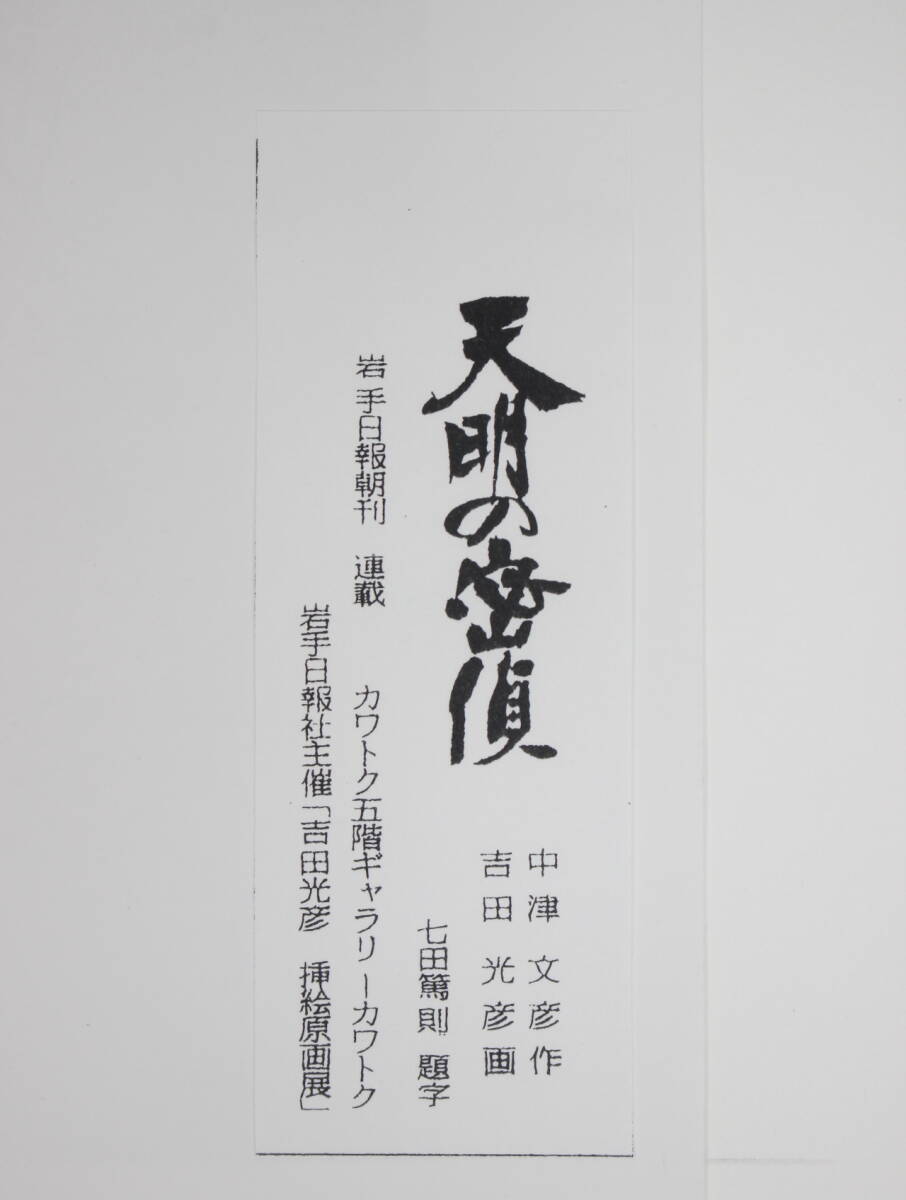 天明の密偵
中津文彦作
吉田光彦画
七田篤則 題字
岩手日報朝刊 連載 カワトク五階ギャラリーカワトク
岩手日報社主催「吉田光彦 挿絵原画展」